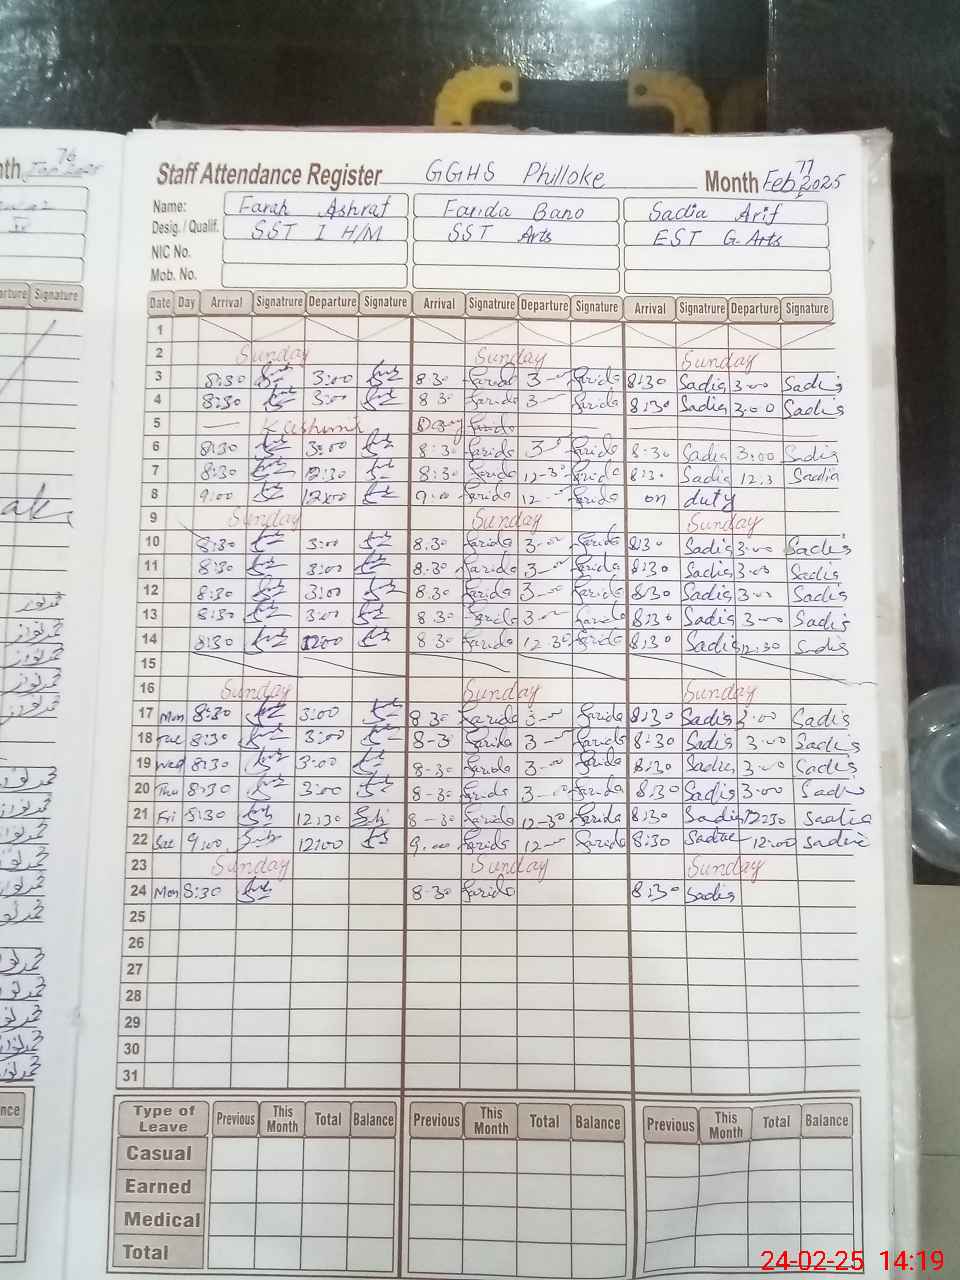 76
nth Jan 2025
77
Staff Attendance Register GGHS Philloke Month Feb, 2025
Name: Farah Ashraf Farida Bano Sadia Arif
Desig. / Qualif. SST I H/M SST Arts EST G.Arts
NIC No.
Mob. No.
arture Signature Date Day Arrival Signatrure Departure Signature Arrival Signatrure Departure Signature Arrival Signatrure Departure Signature
1
2 Sunday Sunday Sunday
3 8:30 3:00 8 30 Farida 3-00 Farida 8:30 Sadia 3:00 Sadia
4 8:30 3:00 8 30 Farida 3- Farida 8:30 Sadia 3:00 Sadia
5 — Kashmir Day Farida
6 8:30 3:00 8:30 Farida 3-00 Farida 8:30 Sadia 3:00 Sadia
7 8:30 12:30 8:30 Farida 12-30 Farida 8:30 Sadia 12.3 Sadia
8 9:00 12:00 9:00 Farida 12- Farida on duty
9 Sunday Sunday Sunday
10 8:30 3:00 8.30 Farida 3-00 Farida 8:30 Sadia 3:00 Sadia
11 8:30 3:00 8.30 Farida 3-00 Farida 8:30 Sadia 3:00 Sadia
12 8:30 3:00 8.30 Farida 3-00 Farida 8:30 Sadia 3:00 Sadia
13 8:30 3:00 8 30 Farida 3-00 Farida 8:30 Sadia 3:00 Sadia
14 8:30 1200 8 30 Farida 12.30 Farida 8:30 Sadia 12:30 Sadia
15
16 Sunday Sunday Sunday
17 Mon 8:30 3:00 8 30 Farida 3-00 Farida 8:30 Sadia 3:00 Sadia
18 Tue 8:30 3:00 8-30 Farida 3-00 Farida 8:30 Sadia 3:00 Sadia
19 Wed 8:30 3:00 8-30 Farida 3-00 Farida 8:30 Sadia 3:00 Sadia
20 Thu 8:30 3:00 8-30 Farida 3-00 Farida 8:30 Sadia 3:00 Sadia
21 Fri 8:30 12:30 8-30 Farida 12-30 Farida 8:30 Sadia 12:30 Saadia
22 Sat 9:00 12:00 9.00 Farida 12-00 Farida 8:30 Sadia 12:00 Sadia
23 Sunday Sunday Sunday
24 Mon 8:30 8-30 Farida 8:30 Sadia
25
26
27
28
29
30
31
nce Type of Leave Previous This Month Total Balance Previous This Month Total Balance Previous This Month Total Balance
Casual
Earned
Medical
Total
24-02-25 14:19